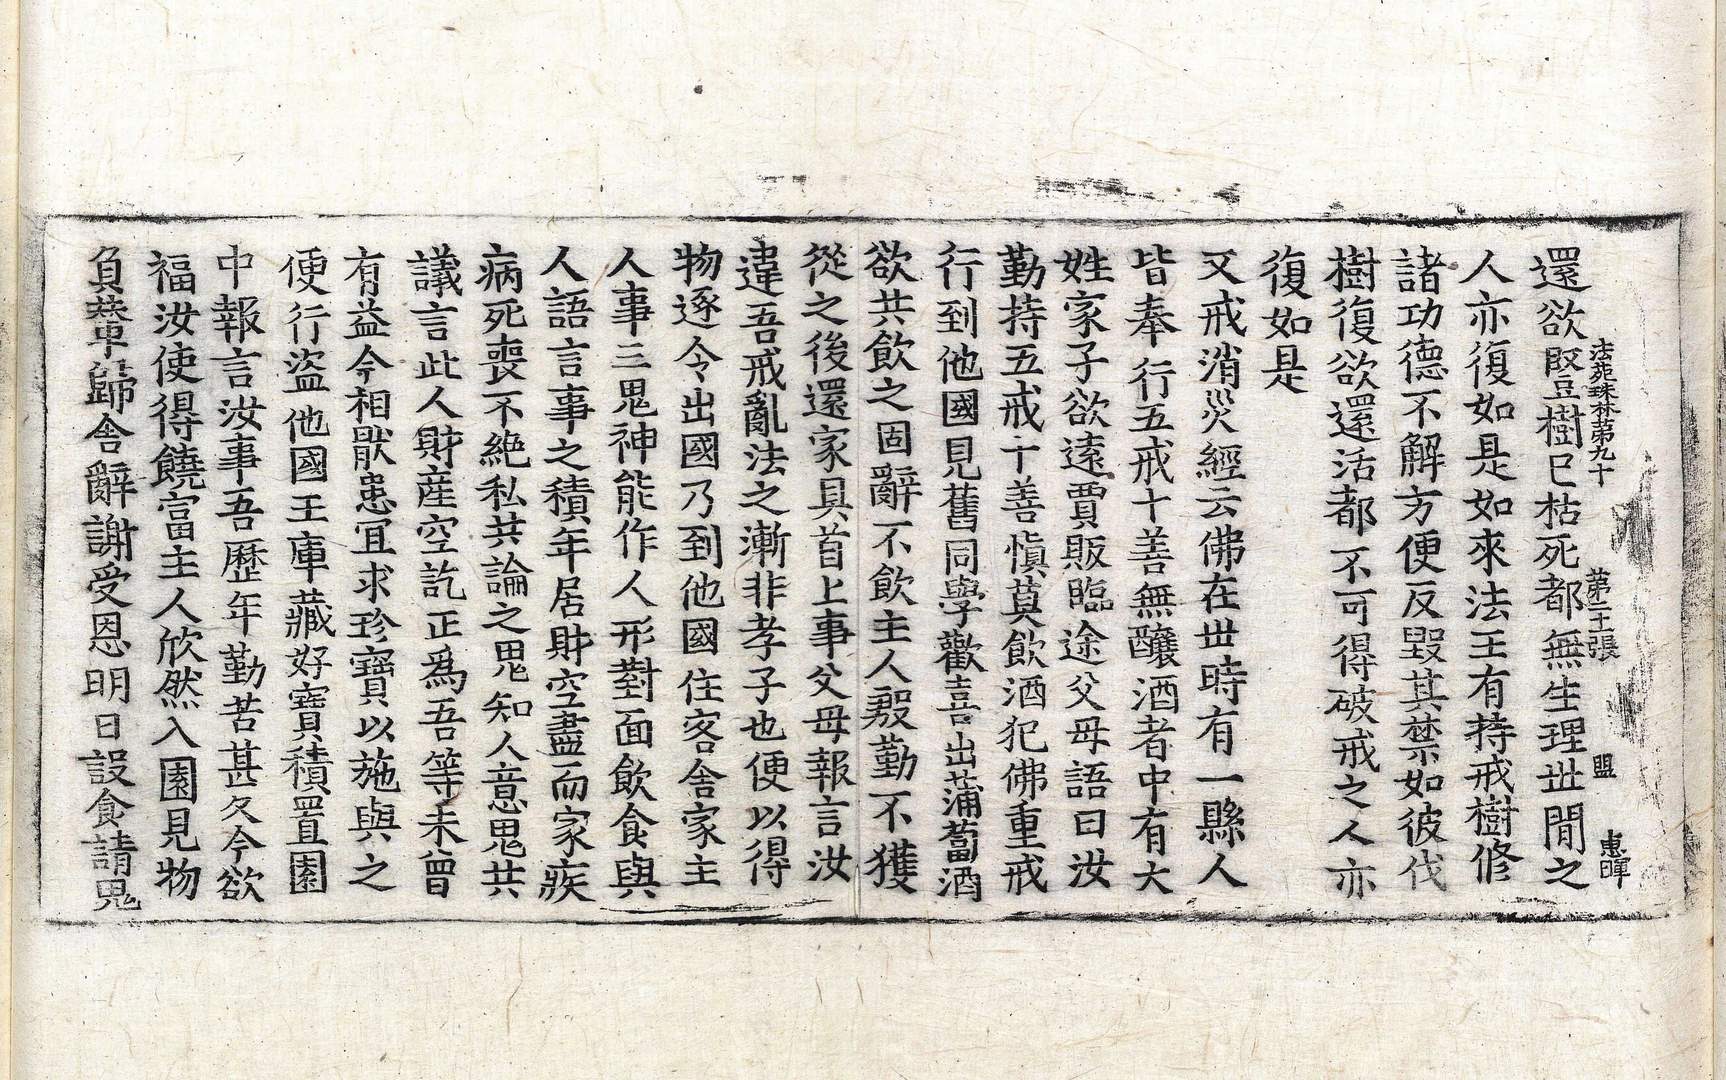 法苑珠林第九十 第二十張 盟 惠暉
還欲竪樹已枯死都無生理世間之
人亦復如是如來法王有持戒樹修
諸功德不解方便反毀其禁如彼伐
樹復欲還活都不可得破戒之人亦
復如是
又戒消災經云佛在世時有一縣人
皆奉行五戒十善無釀酒者中有大
姓家子欲遠賈販臨途父母語曰汝
勤持五戒十善愼莫飮酒犯佛重戒
行到他國見舊同學歡喜出蒲萄酒
欲共飮之固辭不飮主人慇勤不獲
從之後還家具首上事父母報言汝
違吾戒亂法之漸非孝子也便以得
物逐令出國乃到他國住客舍家主
人事三鬼神能作人形對面飮食與
人語言事之積年居財空盡而家疾
病死喪不絶私共論之鬼知人意鬼共
議言此人財産空訖正爲吾等未曾
有益今相猒患冝求珍寶以施與之
便行盜他國王庫藏好寶積置園
中報言汝事吾歷年勤苦甚久今欲
福汝使得饒富主人欣然入園見物
負輦歸舍辭謝受恩明日設食請鬼